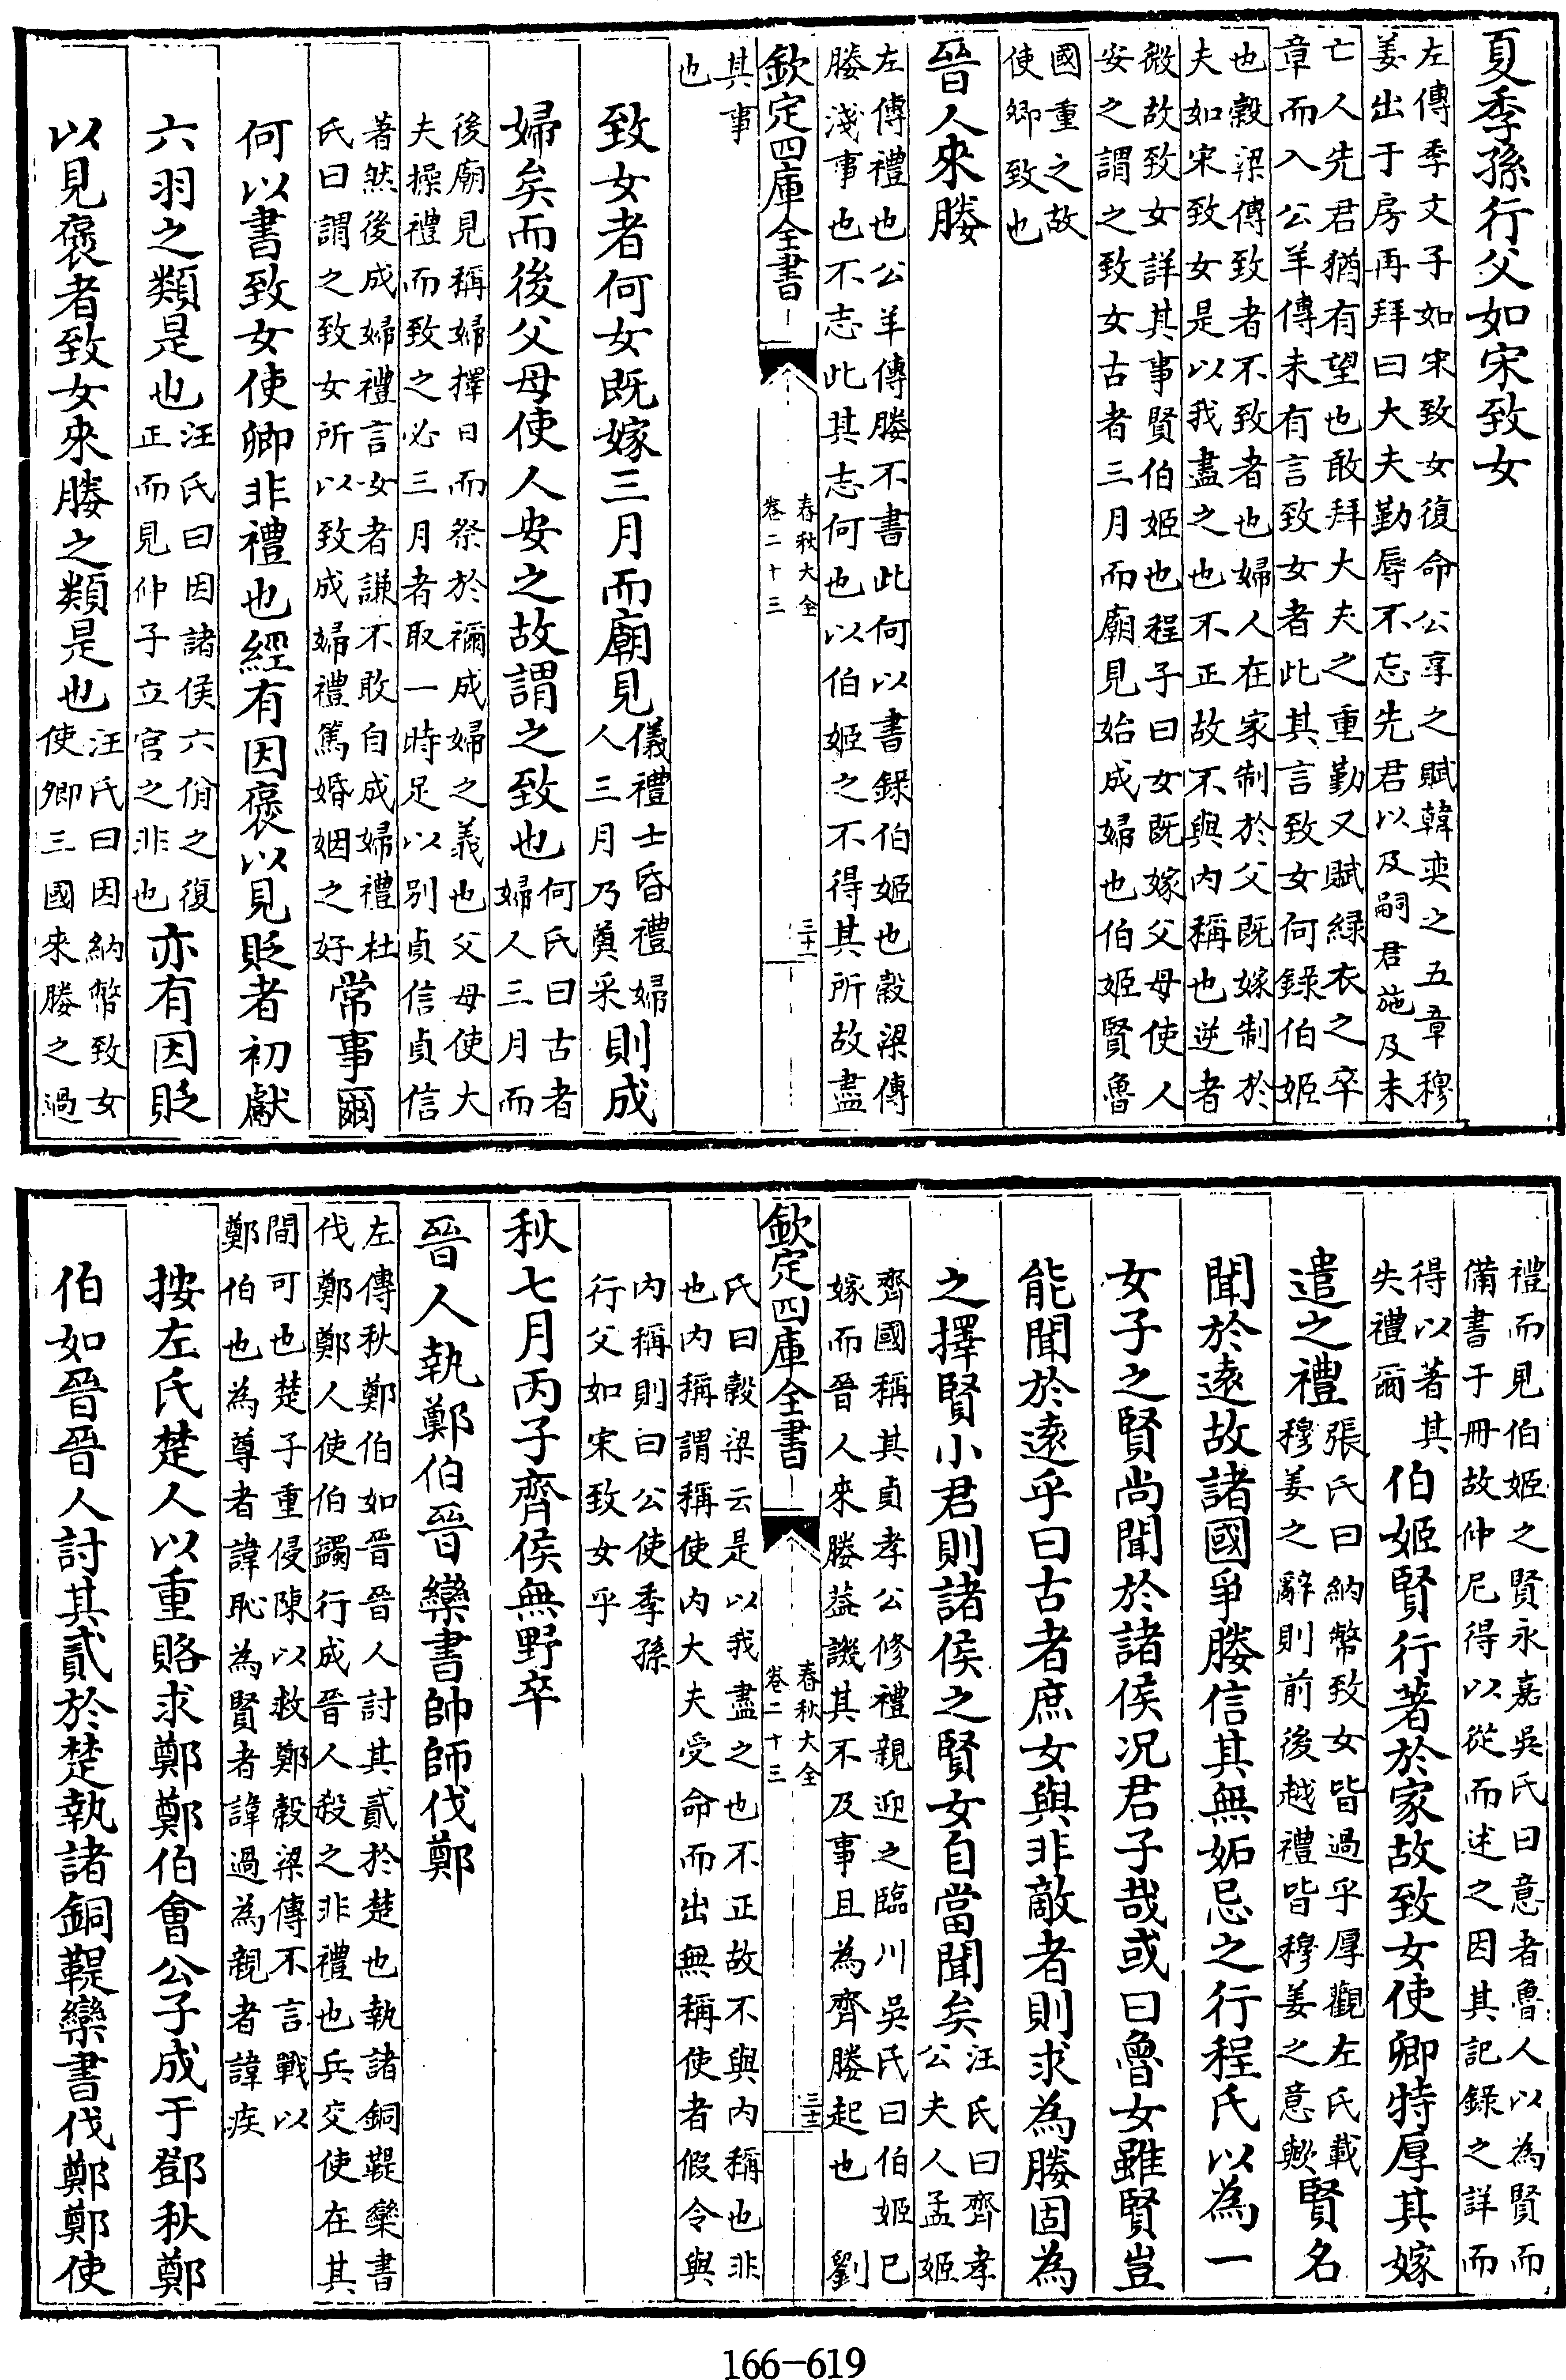 夏季孫行父如宋致女
左傳季文子如宋致女復命公享之賦韓奕之五章穆
姜出于房再拜曰大夫勤辱不忘先君以及嗣君施及未
亡人先君猶有望也敢拜大夫之重勤又賦緑衣之卒
章而入公羊傳未有言致女者此其言致女何錄伯姬
也穀梁傳致者不致者也婦人在家制於父既嫁制於
夫如宋致女是以我盡之也不正故不與內稱也逆者
微故致女詳其事賢伯姬也程子曰女既嫁父母使人
安之謂之致女古者三月而廟見始成婦也伯姬賢魯
國重之故
使卿致也
晉人來媵
左傳禮也公羊傳媵不書此何以書錄伯姬也穀梁傳
媵淺事也不志此其志何也以伯姬之不得其所故盡
欽定四庫全書
春秋大全
卷二十三
三十一
其事
也
致女者何女既嫁三月而廟見儀禮士昏禮婦
人三月乃奠采則成
婦矣而後父母使人安之故謂之致也何氏曰古者
婦人三月而
後廟見稱婦擇日而祭於禰成婦之義也父母使大
夫操禮而致之必三月者取一時足以別貞信貞信
著然後成婦禮言女者謙不敢自成婦禮杜
氏曰謂之致女所以致成婦禮篤婚姻之好常事爾
何以書致女使卿非禮也經有因褒以見貶者初獻
六羽之類是也汪氏曰因諸侯六佾之復
正而見仲子立宫之非也亦有因貶
以見褒者致女來媵之類是也汪氏曰因納幣致女
使卿三國來媵之過
禮而見伯姬之賢永嘉吳氏曰意者魯人以為賢而
備書于冊故仲尼得以從而述之因其記錄之詳而
得以著其
失禮爾伯姬賢行著於家故致女使卿特厚其嫁
遣之禮張氏曰納幣致女皆過乎厚觀左氏載
穆姜之辭則前後越禮皆穆姜之意歟賢名
聞於遠故諸國爭媵信其無妬忌之行程氏以為一
女子之賢尚聞於諸侯况君子哉或曰魯女雖賢豈
能聞於遠乎曰古者庶女與非敵者則求為媵固為
之擇賢小君則諸侯之賢女自當聞矣汪氏曰齊孝
公夫人孟姬
齊國稱其貞孝公修禮親迎之臨川吳氏曰伯姬已
嫁而晉人來媵益譏其不及事且為齊媵起也 劉
欽定四庫全書
春秋大全
卷二十三
三十二
氏曰穀梁云是以我盡之也不正故不與內稱也非
也内稱謂稱使內大夫受命而出無稱使者假令與
内稱則曰公使季孫
行父如宋致女乎
秋七月丙子齊侯無野卒
晉人執鄭伯晉欒書帥師伐鄭
左傳秋鄭伯如晉晉人討其貳於楚也執諸銅鞮欒書
伐鄭鄭人使伯蠲行成晉人殺之非禮也兵交使在其
間可也楚子重侵陳以救鄭穀梁傳不言戰以
鄭伯也為尊者諱恥為賢者諱過為親者諱疾
按左氏楚人以重賂求鄭鄭伯會公子成于鄧秋鄭
伯如晉晉人討其貳於楚執諸銅鞮欒書伐鄭鄭使
166-619